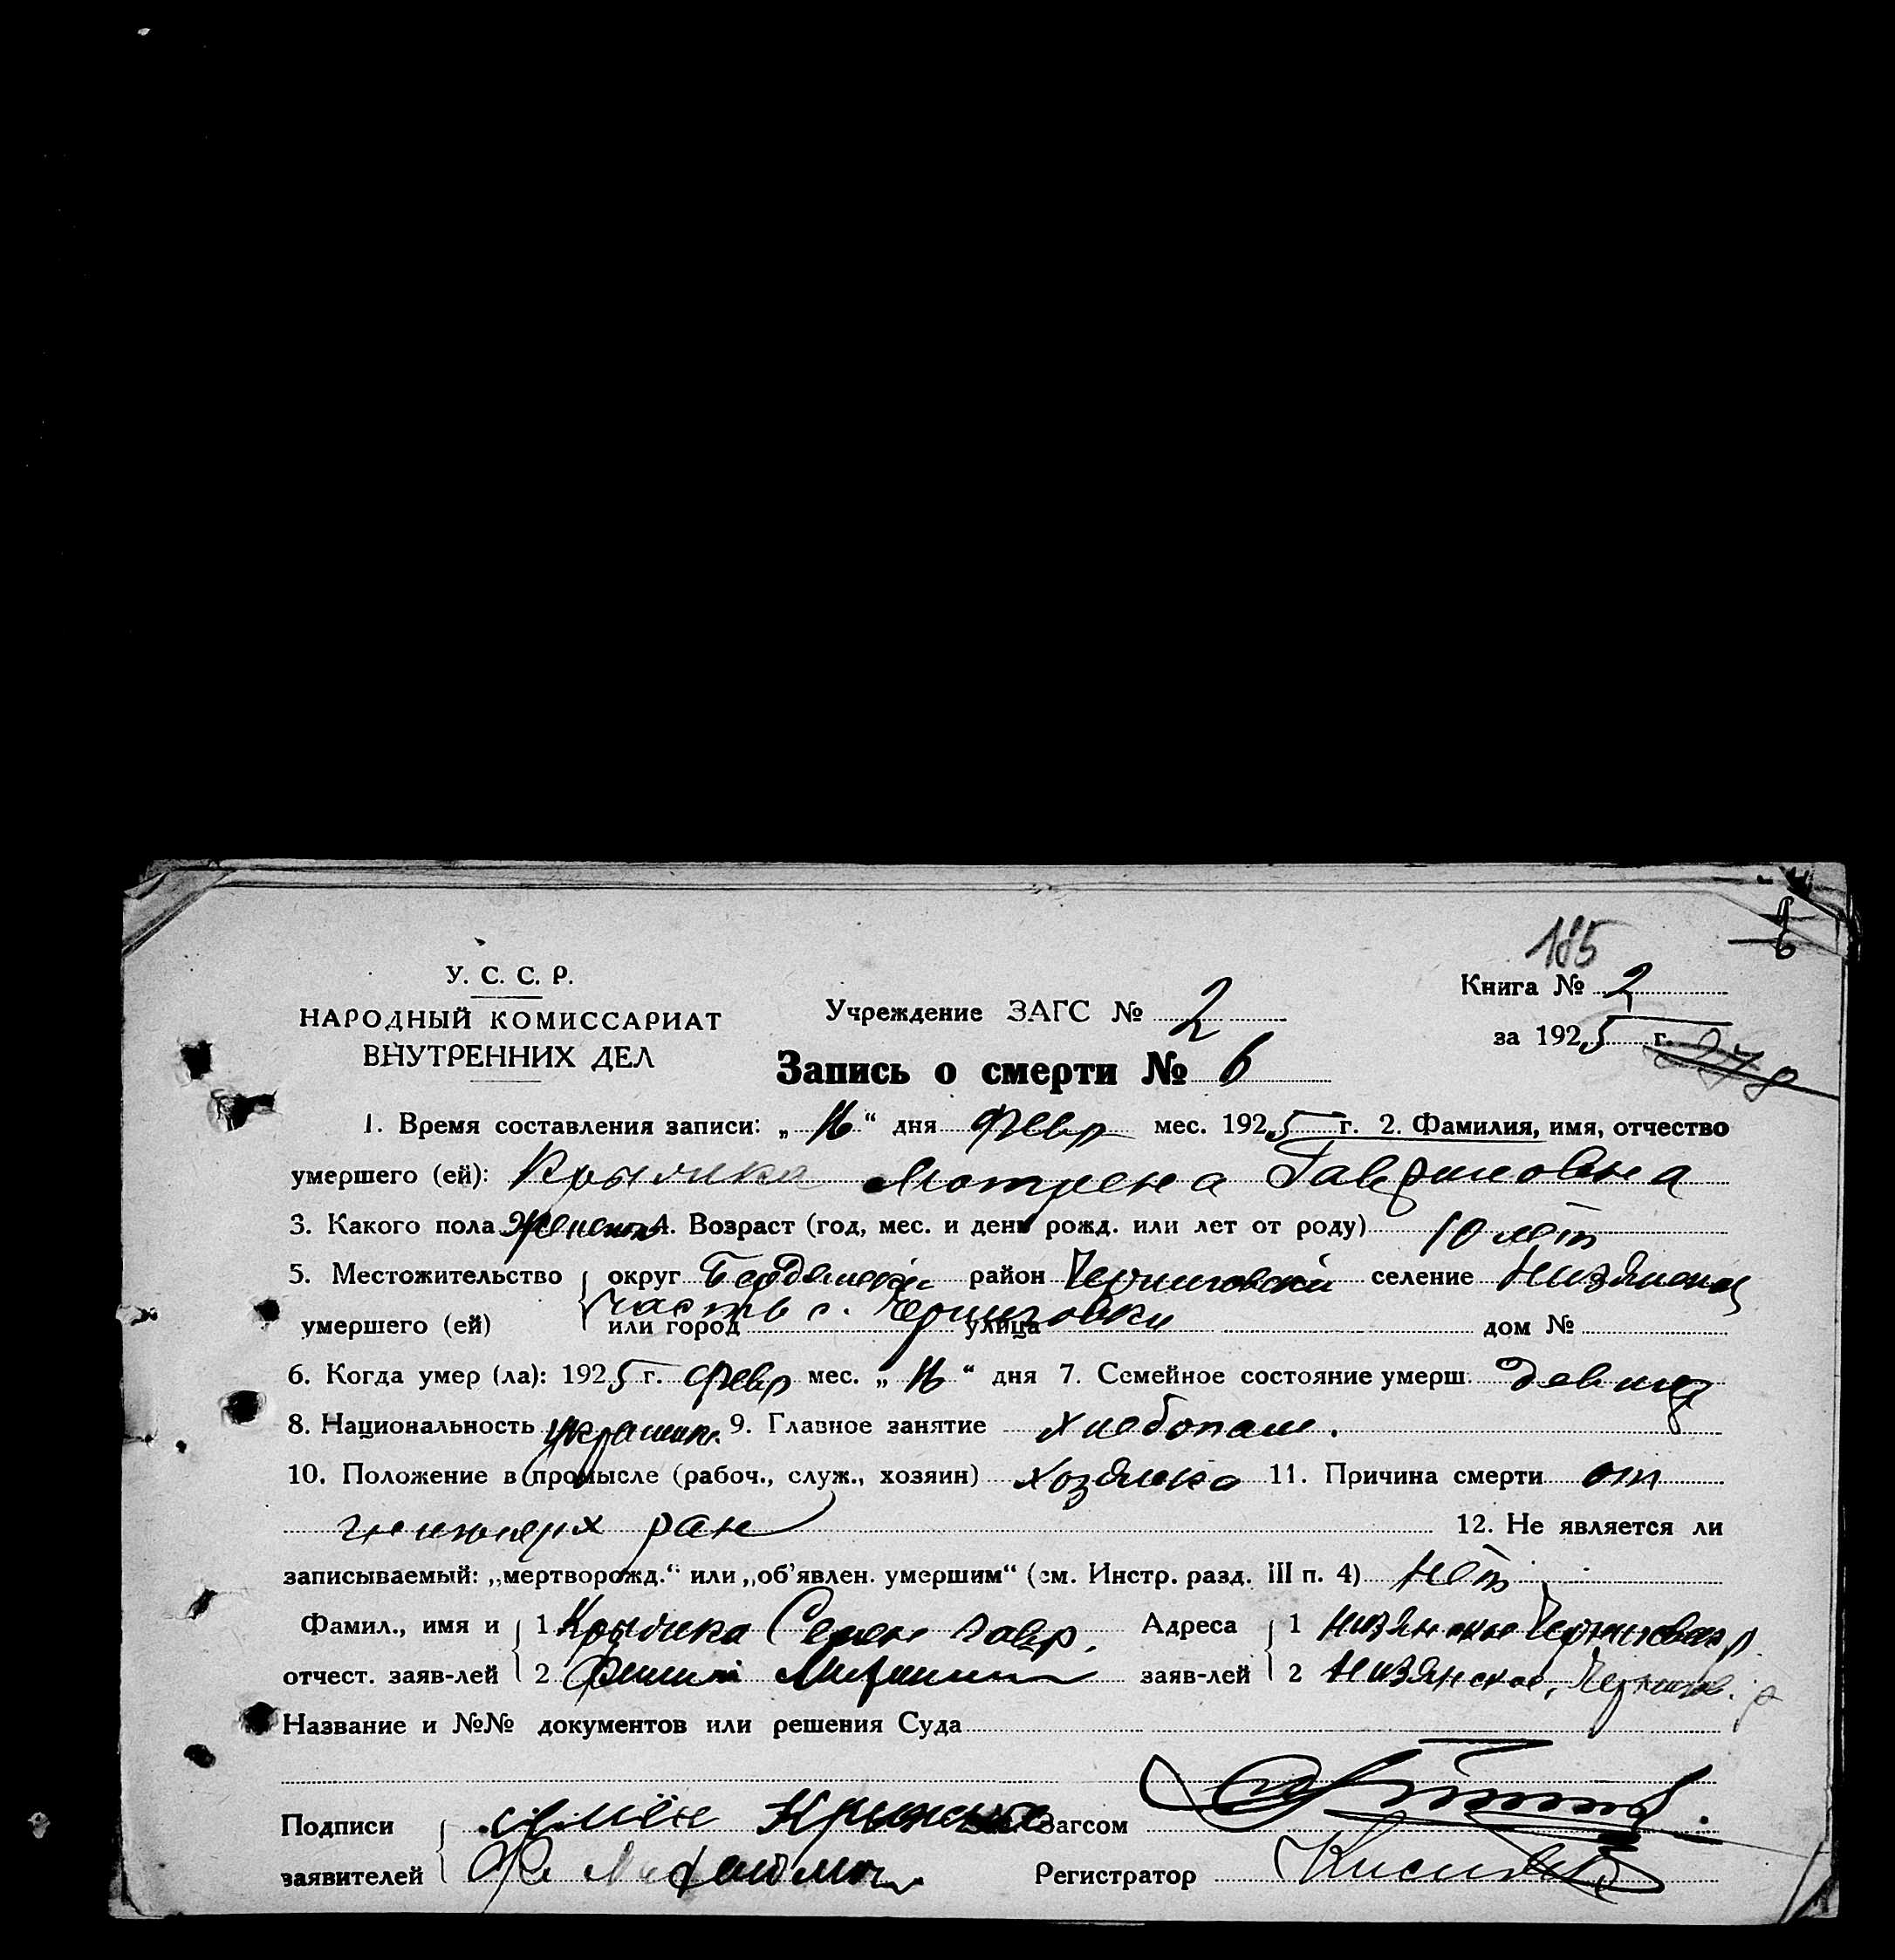 185
6
У. С. С. Р.
НАРОДНЫЙ КОМИССАРИАТ
ВНУТРЕННИХ ДЕЛ
Учреждение ЗАГС № 2
Книга № 2
за 1925 г.
Запись о смерти № 6
1. Время составления записи: „16“ дня февр мес. 1925 г. 2. Фамилия, имя, отчество
умершего (ей): Мотрена Гавриловна
3. Какого пола женск 4. Возраст (год, мес. и день рожд. или лет от роду) 10 лет
5. Местожительство округ Бердянский район Черниговский селение Низянское
часть с. Черниговки
умершего (ей) или город улица дом №
6. Когда умер (ла): 1925 г. февр мес. „16“ дня 7. Семейное состояние умерш. девица
8. Национальность украинк. 9. Главное занятие хлебопаш.
10. Положение в промысле (рабоч., служ., хозяин) хозяйка 11. Причина смерти от
ран 12. Не является ли
записываемый: „мертворожд.“ или „об’явлен. умершим“ (см. Инстр. разд. III п. 4) нет
Фамил., имя и 1 Семен Гавр. Адреса 1 Низянское Черниговск р.
отчест. заяв-лей 2 заяв-лей 2 Низянское, Чернигов. р
Название и №№ документов или решения Суда
Подписи Семён Загсом
заявителей Регистратор